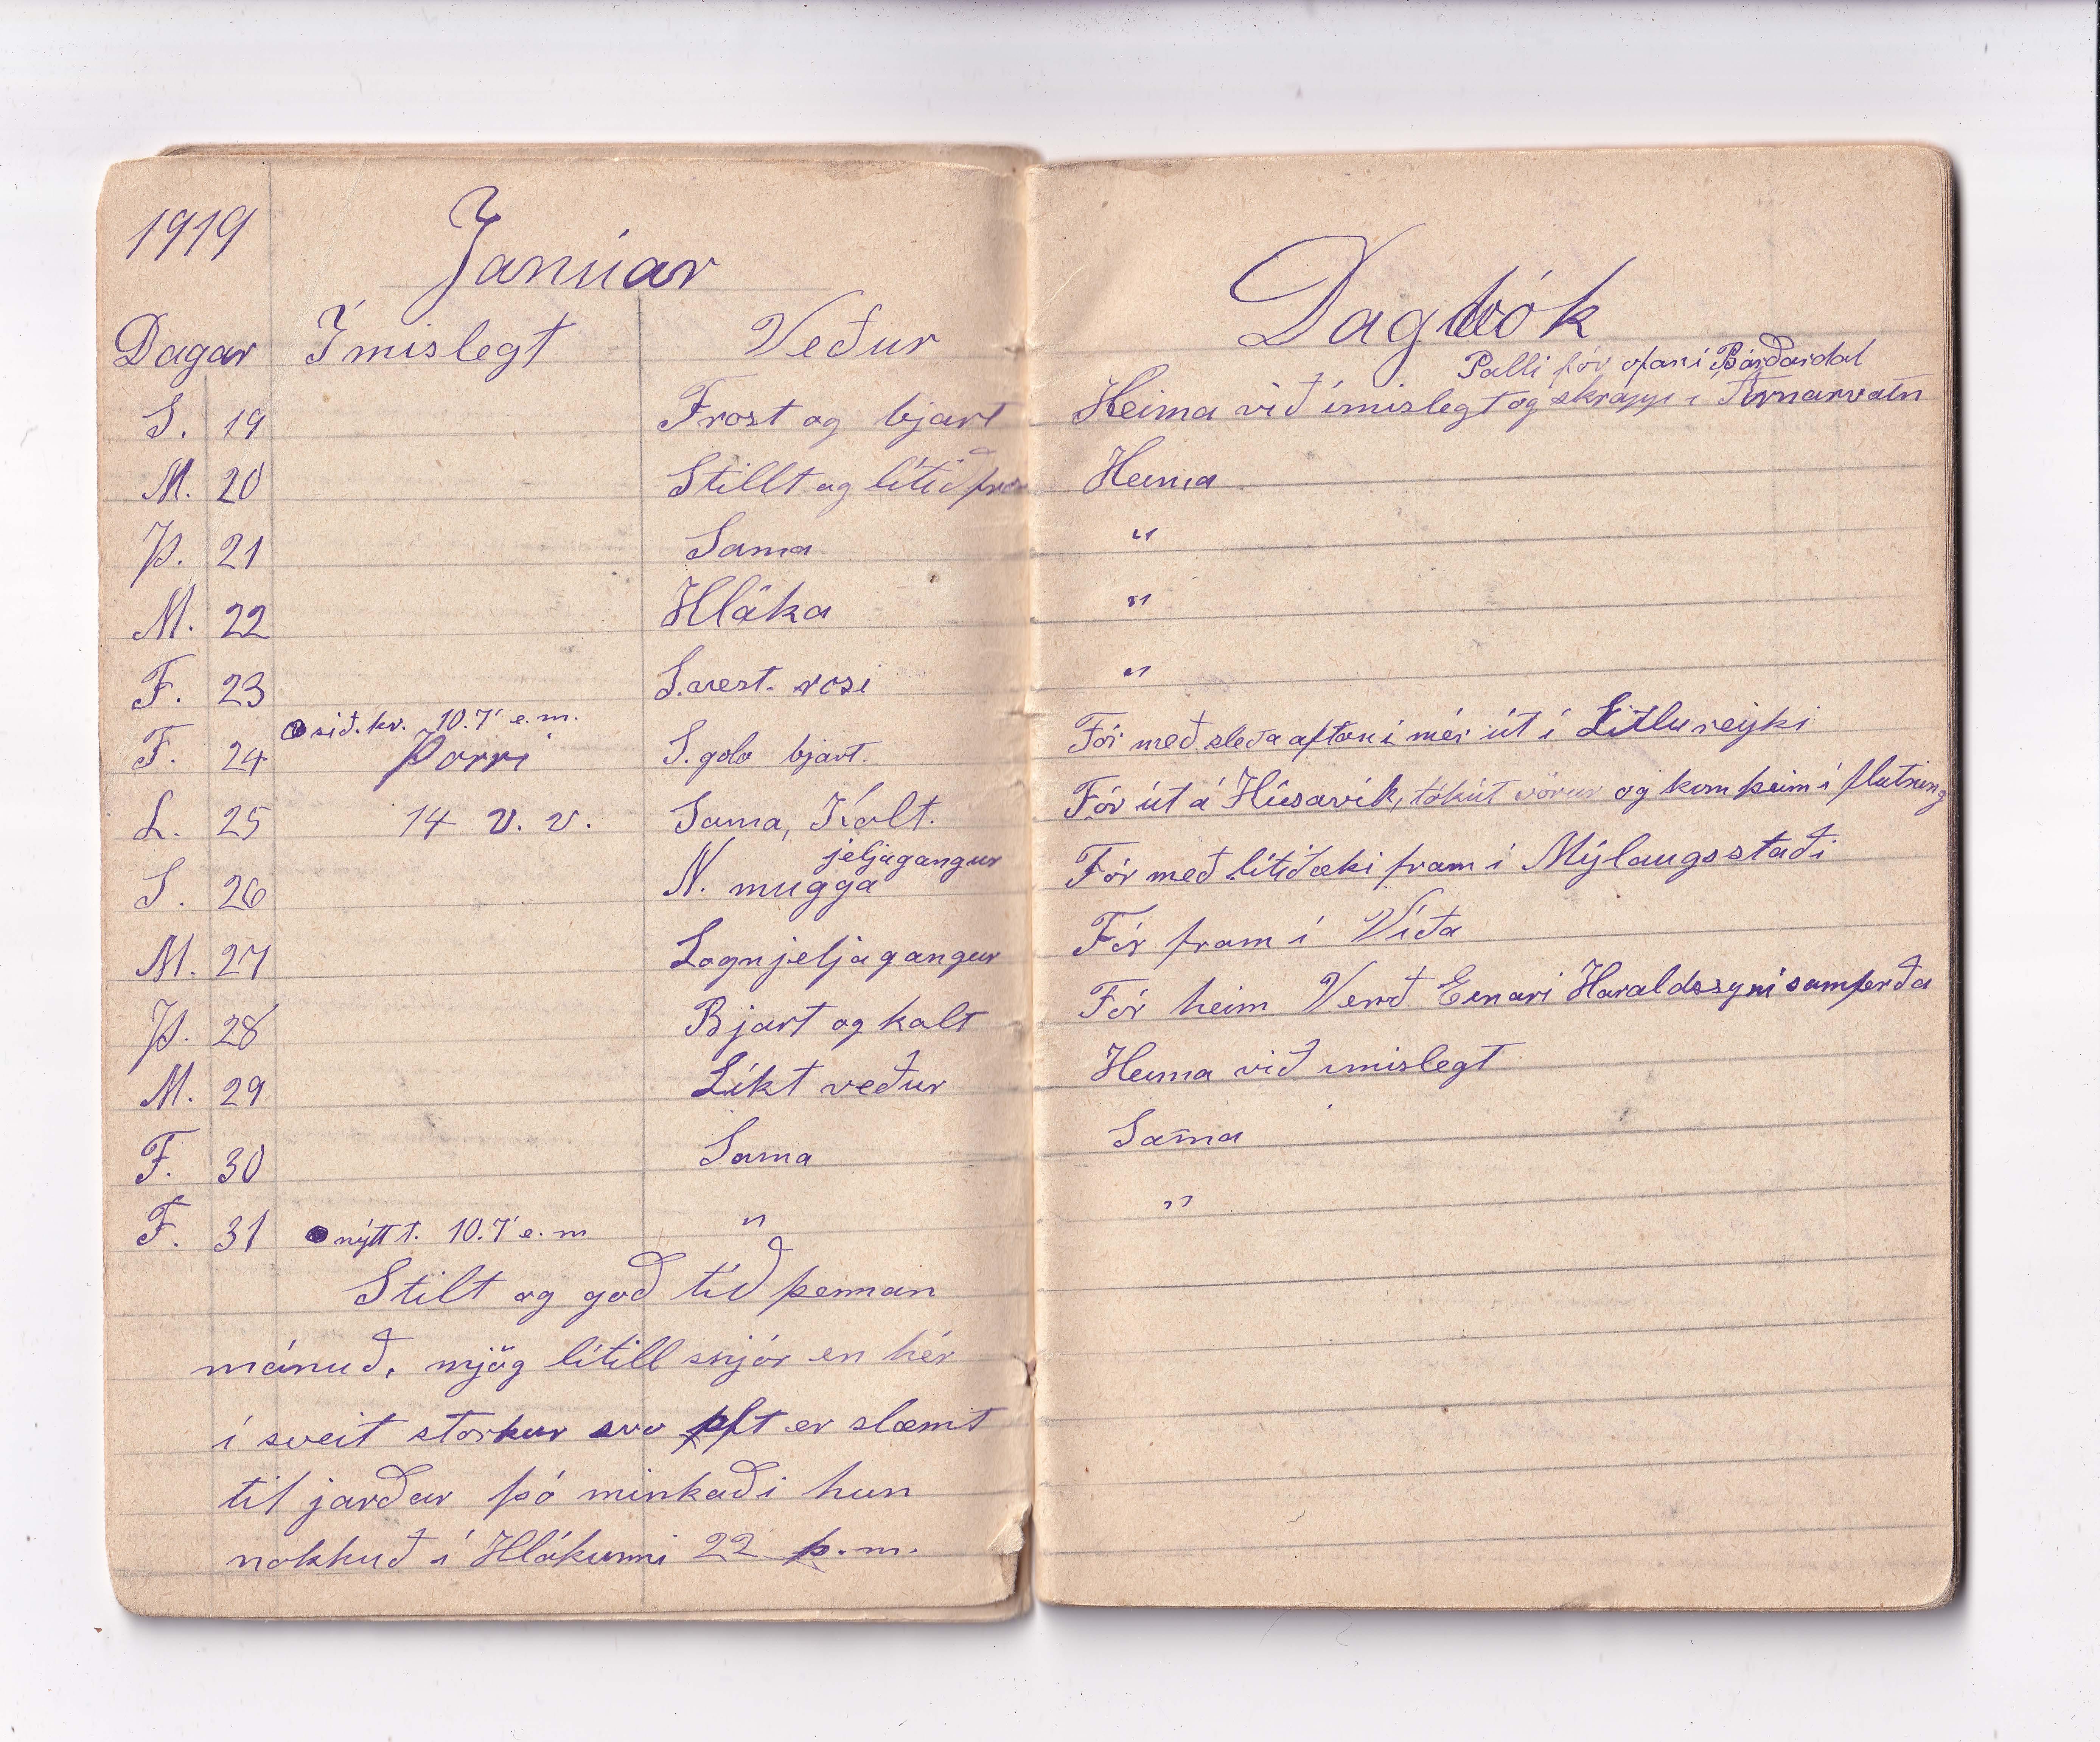 1919
Januar
Dagar Ímislegt Veður
S. 19 Frost og bjart
M. 20 Stillt og lítið fros
Þ. 21 Sama
M. 22 Hláka
F. 23 S.vest. rosi
sið.kv. 10.7' e.m.
F. 24 Þorri S.gola bjart.
L. 25 14 v. v. Sama, Kalt.
jeljagangur
S. 26 N. mugga
M. 27 Logn jeljagangur
Þ. 28 Bjart og kalt
M. 29 Líkt veður
F. 30 Sama
F. 31 nýtt t. 10.7' e.m "
Stilt og goð tíð þennan
mánuð, mjög lítill snjór en hér
í sveit storkur svo oft er slæmt
til jarðar þó minkaði hun
nokkuð í Hlákunni 22 þ.m.
Dagbók
Palli fór ofan í Bárðardal
Heima við ímislegt og skrapp í Arnarvatn
Heima
"
"
"
Fór með sleða aftan í mér út í Litlureyki
Fór út á Húsavík, tók út vörur og kom þeim í flutning
Fór með lítið æki fram í Mýlaugsstaði
Fór fram í Víða
Fór heim Verð Einari Haraldssyni samferða
Heima við imislegt
Sama
"